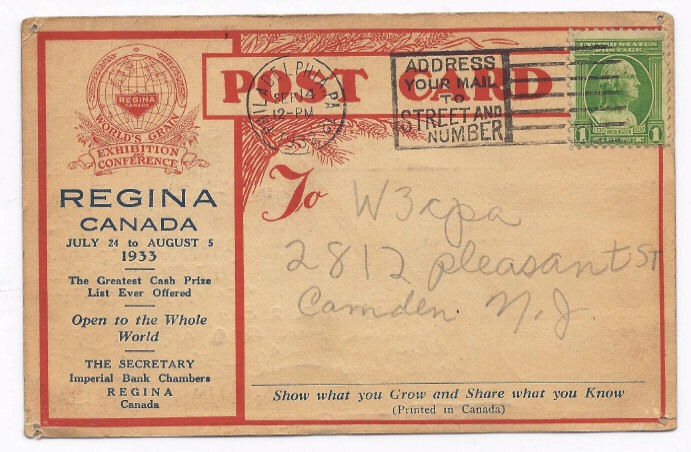 REGINA
WORLD'S GRAIN
EXHIBITION
and
CONFERENCE
REGINA
CANADA
JULY 24 to AUGUST 5
1933
The Greatest Cash Prize
List Ever Offered
Open to the Whole
World
THE SECRETARY
Imperial Bank Chambers
REGINA
Canada
POST CARD
PHILADELPHIA, PA.
SEP 14
12-PM
ADDRESS
YOUR MAIL
TO
STREET AND
NUMBER
UNITED STATES POSTAGE
1 1
To
W3cpa
2812 pleasant ST
Camden. N.J.
Show what you Grow and Share what you Know
(Printed in Canada)